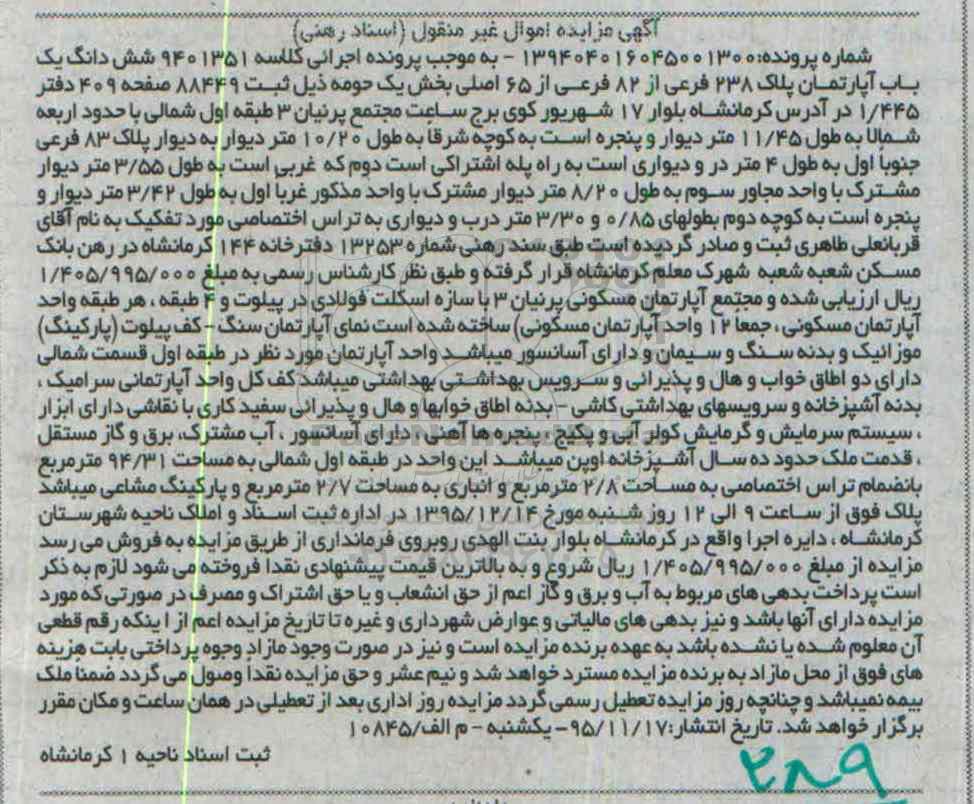 آگهی مزایده اموال غیر منقول (اسناد رهنی)
شماره پرونده:۱۳۹۴۰۴۰۱۶۰۴۵۰۰۱۳۰۰ - به موجب پرونده اجرائی کلاسه ۹۴۰۱۳۵۱ شش دانگ یک
باب آپارتمان پلاک ۲۳۸ فرعی از ۸۲ فرعی از ۶۵ اصلی بخش یک حومه ذیل ثبت ۸۸۴۴۹ صفحه ۴۰۹ دفتر
۱/۴۴۵ در آدرس کرمانشاه بلوار ۱۷ شهریور کوی برج ساعت مجتمع پرنیان ۳ طبقه اول شمالی با حدود اربعه
شمالا به طول ۱۱/۴۵ متر دیوار و پنجره است به کوچه شرقا به طول ۱۰/۲۰ متر دیوار به دیوار پلاک ۸۳ فرعی
جنوبا اول به طول ۴ متر در و دیواری است به راه پله اشتراکی است دوم که غربی است به طول ۳/۵۵ متر دیوار
مشترک با واحد مجاور سوم به طول ۸/۲۰ متر دیوار مشترک با واحد مذکور غربا اول به طول ۳/۴۲ متر دیوار و
پنجره است به کوچه دوم بطولهای ۰/۸۵ و ۳/۳۰ متر درب و دیواری به تراس اختصاصی مورد تفکیک به نام آقای
قربانعلی طاهری ثبت و صادر گردیده است طبق سند رهنی شماره ۱۳۲۵۳ دفترخانه ۱۴۴ کرمانشاه در رهن بانک
مسکن شعبه شعبه شهرک معلم کرمانشاه قرار گرفته و طبق نظر کارشناس رسمی به مبلغ ۱/۴۰۵/۹۹۵/۰۰۰
ریال ارزیابی شده و مجتمع آپارتمان مسکونی پرنیان ۳ با سازه اسکلت فولادی در پیلوت و ۴ طبقه ، هر طبقه واحد
آپارتمان مسکونی ، جمعا ۱۲ واحد آپارتمان مسکونی) ساخته شده است نمای آپارتمان سنگ - کف پیلوت (پارکینگ)
موزائیک و بدنه سنگ و سیمان و دارای آسانسور میباشد واحد آپارتمان مورد نظر در طبقه اول قسمت شمالی
دارای دو اطاق خواب و هال و پذیرائی و سرویس بهداشتی بهداشتی میباشد کف کل واحد آپارتمانی سرامیک ،
بدنه آشپزخانه و سرویسهای بهداشتی کاشی - بدنه اطاق خوابها و هال و پذیرائی سفید کاری با نقاشی دارای ابزار
، سیستم سرمایش و گرمایش کولر آبی و پکیج ، پنجره ها آهنی ، دارای آسانسور ، آب مشترک، برق و گاز مستقل
، قدمت ملک حدود ده سال آشپزخانه اوپن میباشد این واحد در طبقه اول شمالی به مساحت ۹۴/۳۱ مترمربع
بانضمام تراس اختصاصی به مساحت ۲/۸ مترمربع و انباری به مساحت ۲/۷ مترمربع و پارکینگ مشاعی میباشد
پلاک فوق از ساعت ۹ الی ۱۲ روز شنبه مورخ ۱۳۹۵/۱۲/۱۴ در اداره ثبت اسناد و املاک ناحیه شهرستان
کرمانشاه ، دایره اجرا واقع در کرمانشاه بلوار بنت الهدی روبروی فرمانداری از طریق مزایده به فروش می رسد
مزایده از مبلغ ۱/۴۰۵/۹۹۵/۰۰۰ ریال شروع و به بالاترین قیمت پیشنهادی نقدا فروخته می شود لازم به ذکر
است پرداخت بدهی های مربوط به آب و برق و گاز اعم از حق انشعاب و یا حق اشتراک و مصرف در صورتی که مورد
مزایده دارای آنها باشد و نیز بدهی های مالیاتی و عوارض شهرداری و غیره تا تاریخ مزایده اعم از اینکه رقم قطعی
آن معلوم شده یا نشده باشد به عهده برنده مزایده است و نیز در صورت وجود مازاد وجوه پرداختی بابت هزینه
های فوق از محل مازاد به برنده مزایده مسترد خواهد شد و نیم عشر و حق مزایده نقدا وصول می گردد ضمنا ملک
بیمه نمیباشد و چنانچه روز مزایده تعطیل رسمی گردد مزایده روز اداری بعد از تعطیلی در همان ساعت و مکان مقرر
برگزار خواهد شد. تاریخ انتشار:۹۵/۱۱/۱۷- یکشنبه - م الف/۱۰۸۴۵
ثبت اسناد ناحیه ۱ کرمانشاه
۲۸۹